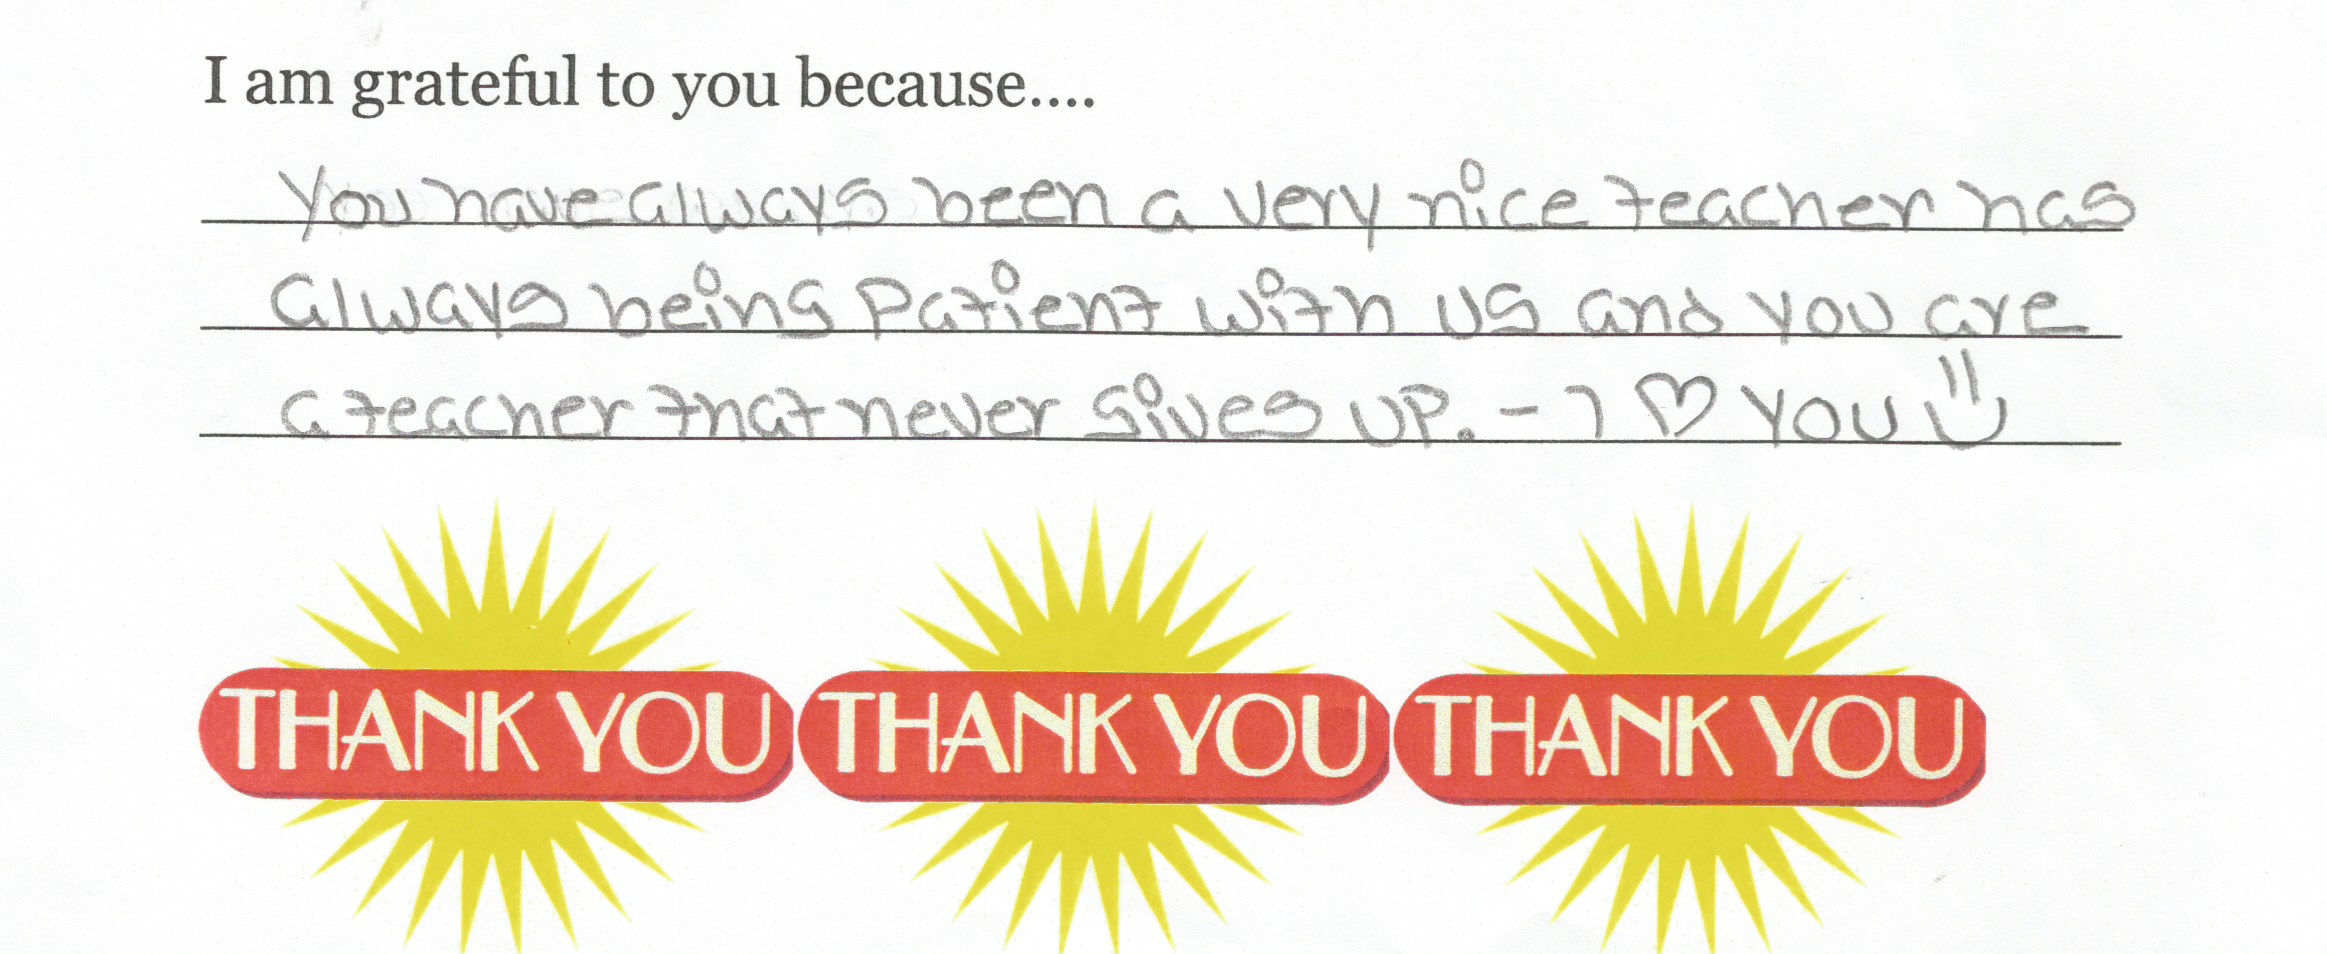 I am grateful to you because....
You have always been a very nice teacher has
always being patient with us and you are
a teacher that never gives up. - I ♡ you
THANK YOU THANK YOU THANK YOU